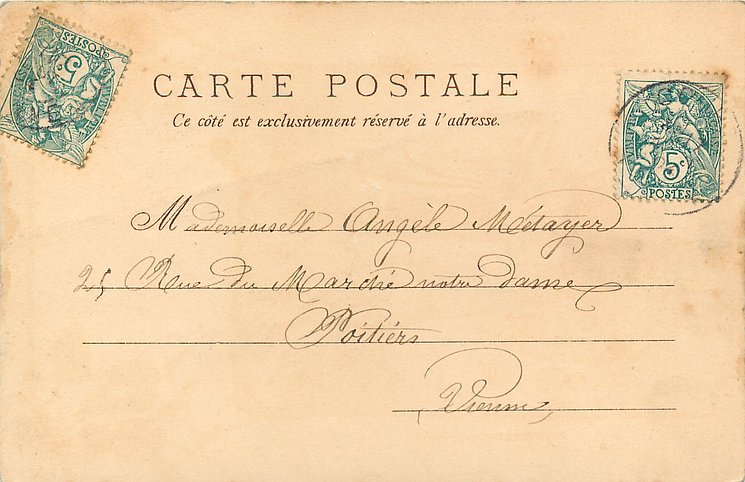 CARTE POSTALE
Ce côté est exclusivement réservé à l'adresse.
5c
POSTES
5c
POSTES
Mademoiselle Angèle Métayer
25 Rue du Marché notre dame
Poitiers
Vienne